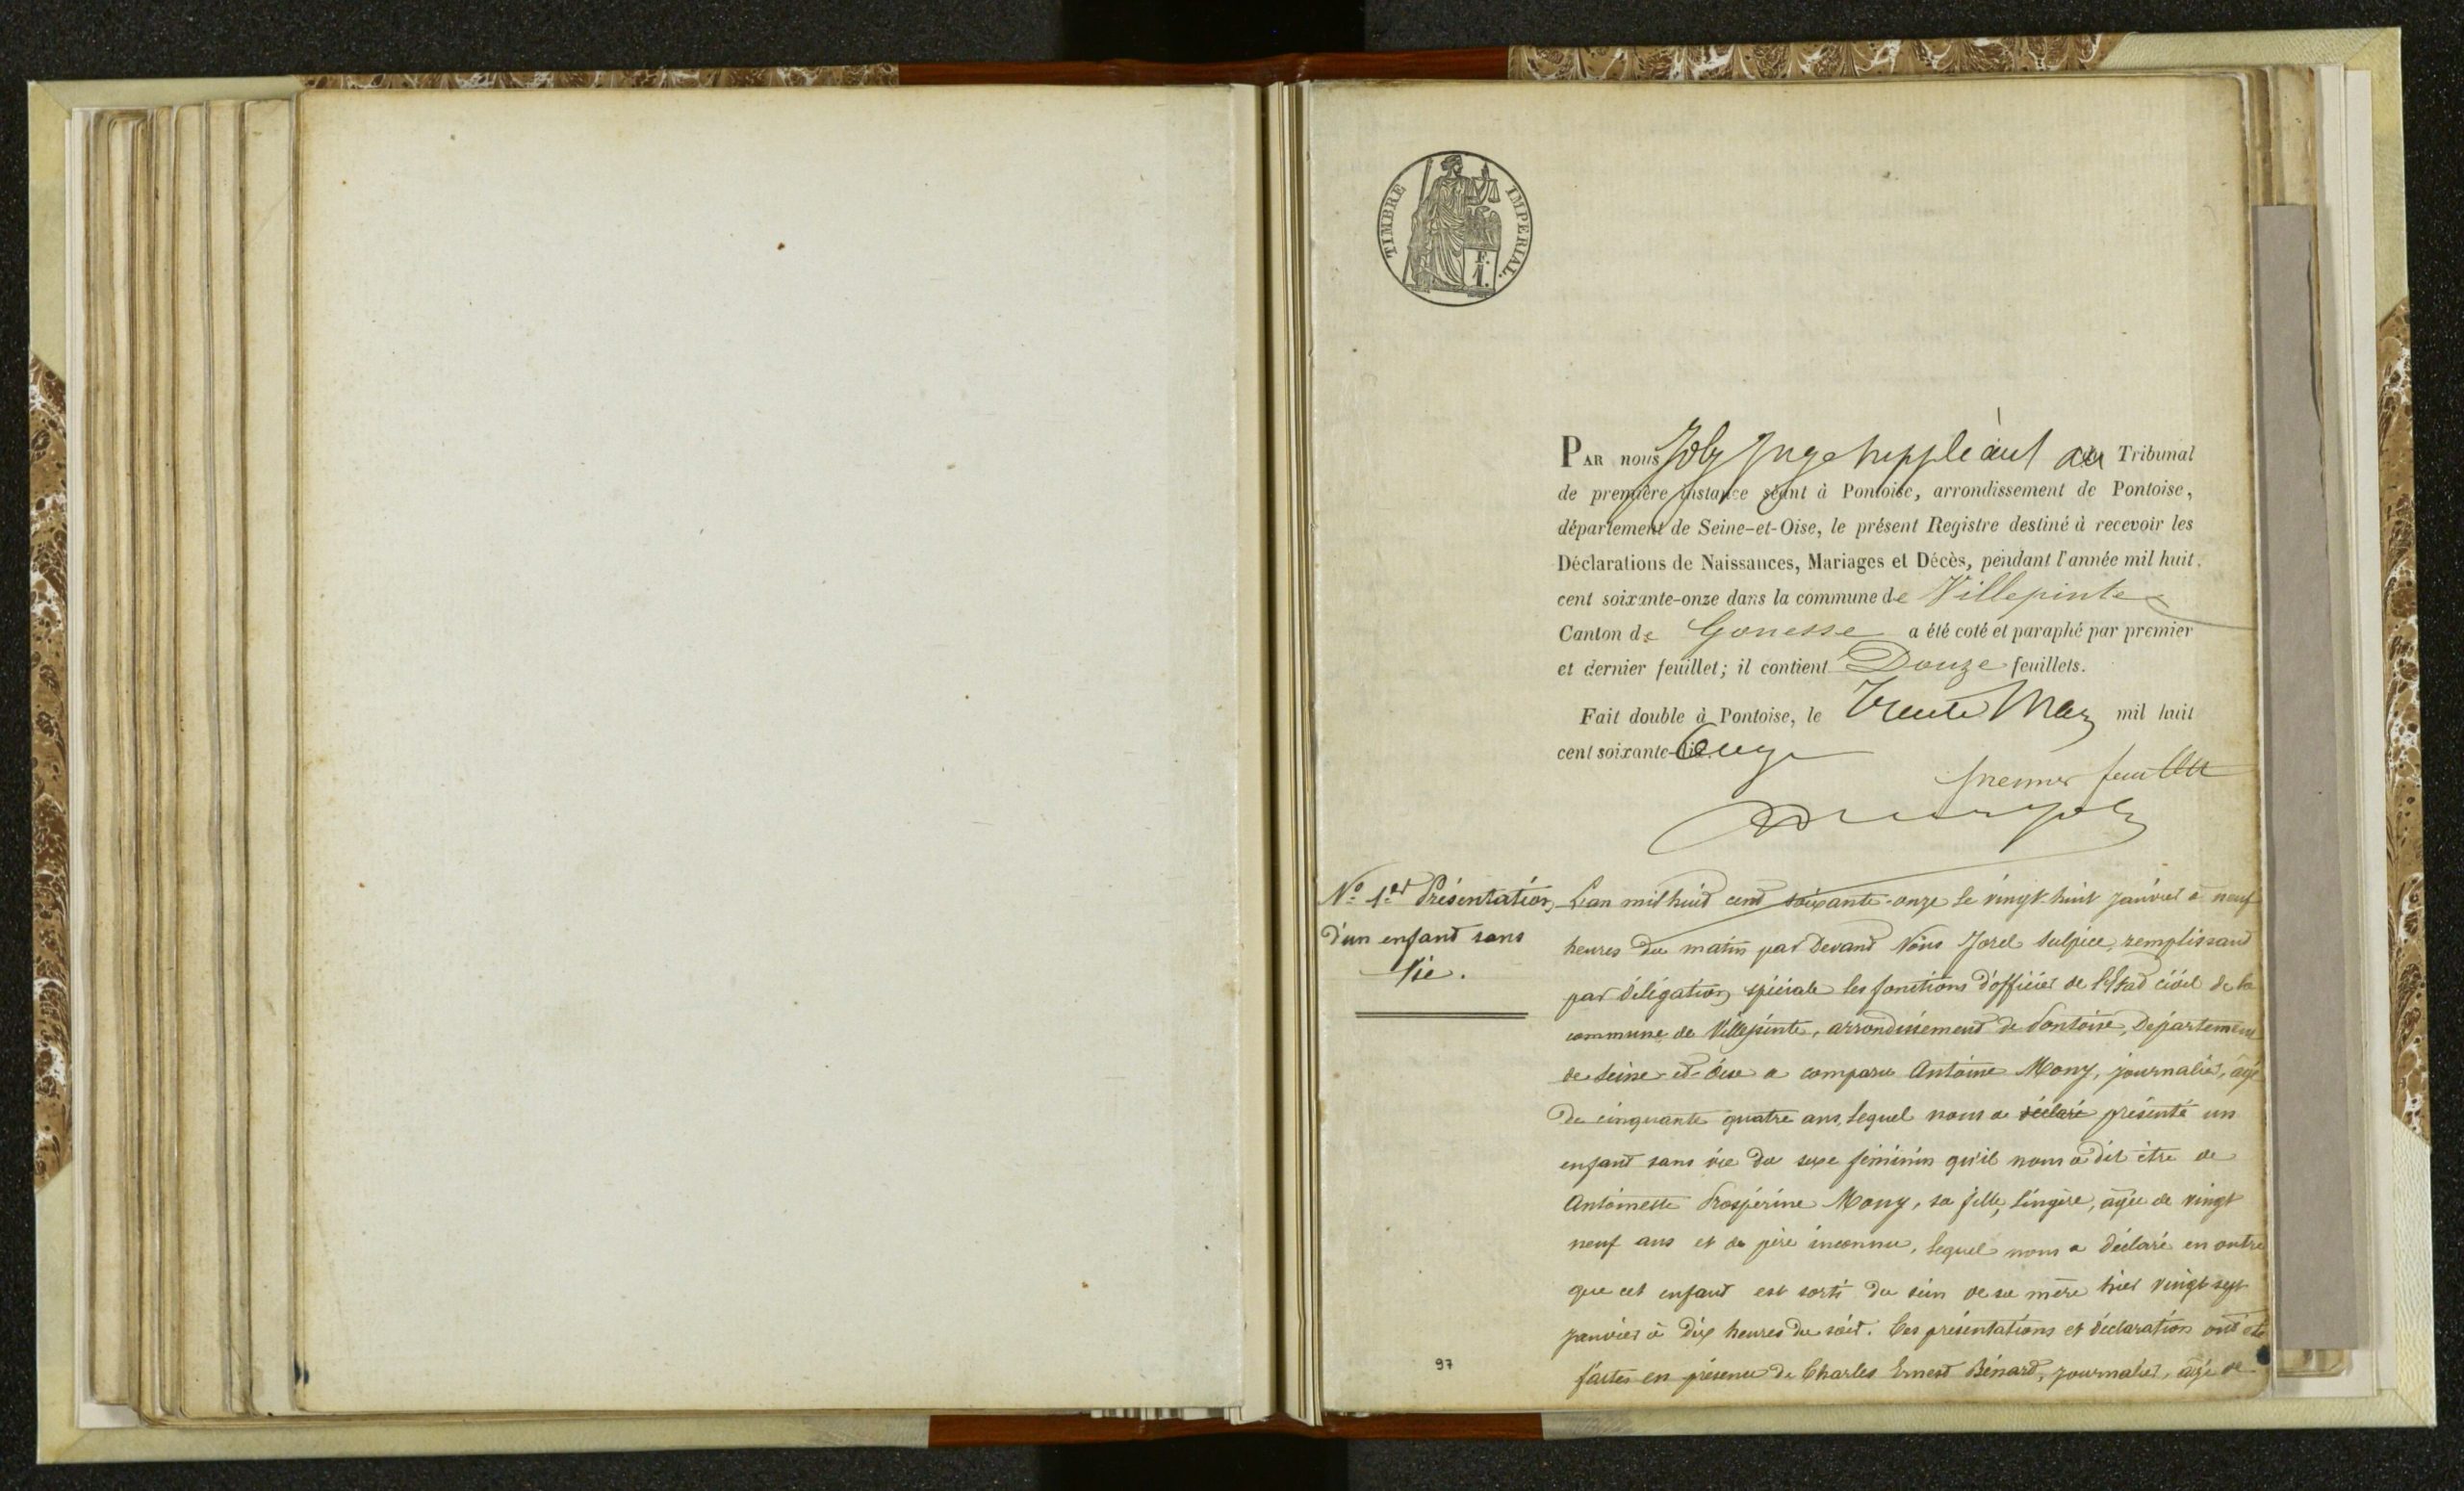 TIMBRE IMPERIAL.
F.
1.
PAR nous Joly Juge suppléant au Tribunal
de première instance séant à Pontoise, arrondissement de Pontoise,
département de Seine-et-Oise, le présent Registre destiné à recevoir les
Déclarations de Naissances, Mariages et Décès, pendant l'année mil huit
cent soixante-onze dans la commune de Villepinte
Canton de Gonesse a été coté et paraphé par premier
et dernier feuillet; il contient Douze feuillets.
Fait double à Pontoise, le Trente Mars mil huit
cent soixante-onze
premier feuillet
N° 1er Présentation
d'un enfant sans
Vie.
L'an mil huit cent soixante-onze le vingt huit janvier à neuf
heures du matin par devant Nous Jorel Sulpice, remplissant
par délégation spéciale les fonctions d'officier de l'Etat civil de la
commune de Villepinte, arrondissement de Pontoise, Département
de Seine-et-Oise a comparu Antoine Mony, journalier, âgé
de cinquante quatre ans, lequel nous a déclaré présenté un
enfant sans vie du sexe féminin qu'il nous a dit être de
Antoinette Prospérine Mony, sa fille, lingère, âgée de vingt
neuf ans et de père inconnu, lequel nous a déclaré en outre
que cet enfant est sorti du sein de sa mère hier vingt sept
janvier à dix heures du soir. Ces présentations et déclaration ont été
faites en présence de Charles Ernest Bénard, journalier, âgé de
97